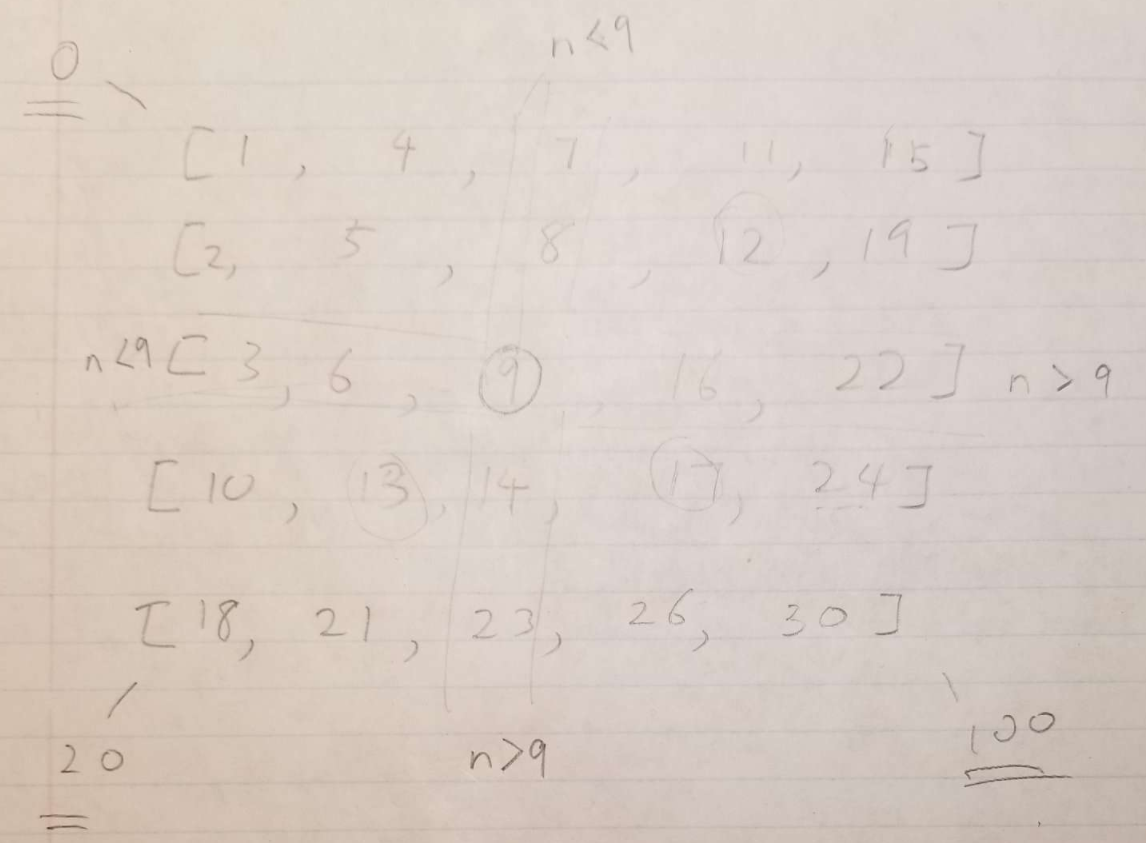 n<9
0
[1, 4, 7, 11, 15]
[2, 5, 8, 12, 19]
n<9 [3, 6, 9, 16, 22] n>9
[10, 13, 14, 17, 24]
[18, 21, 23, 26, 30]
20 n>9 100